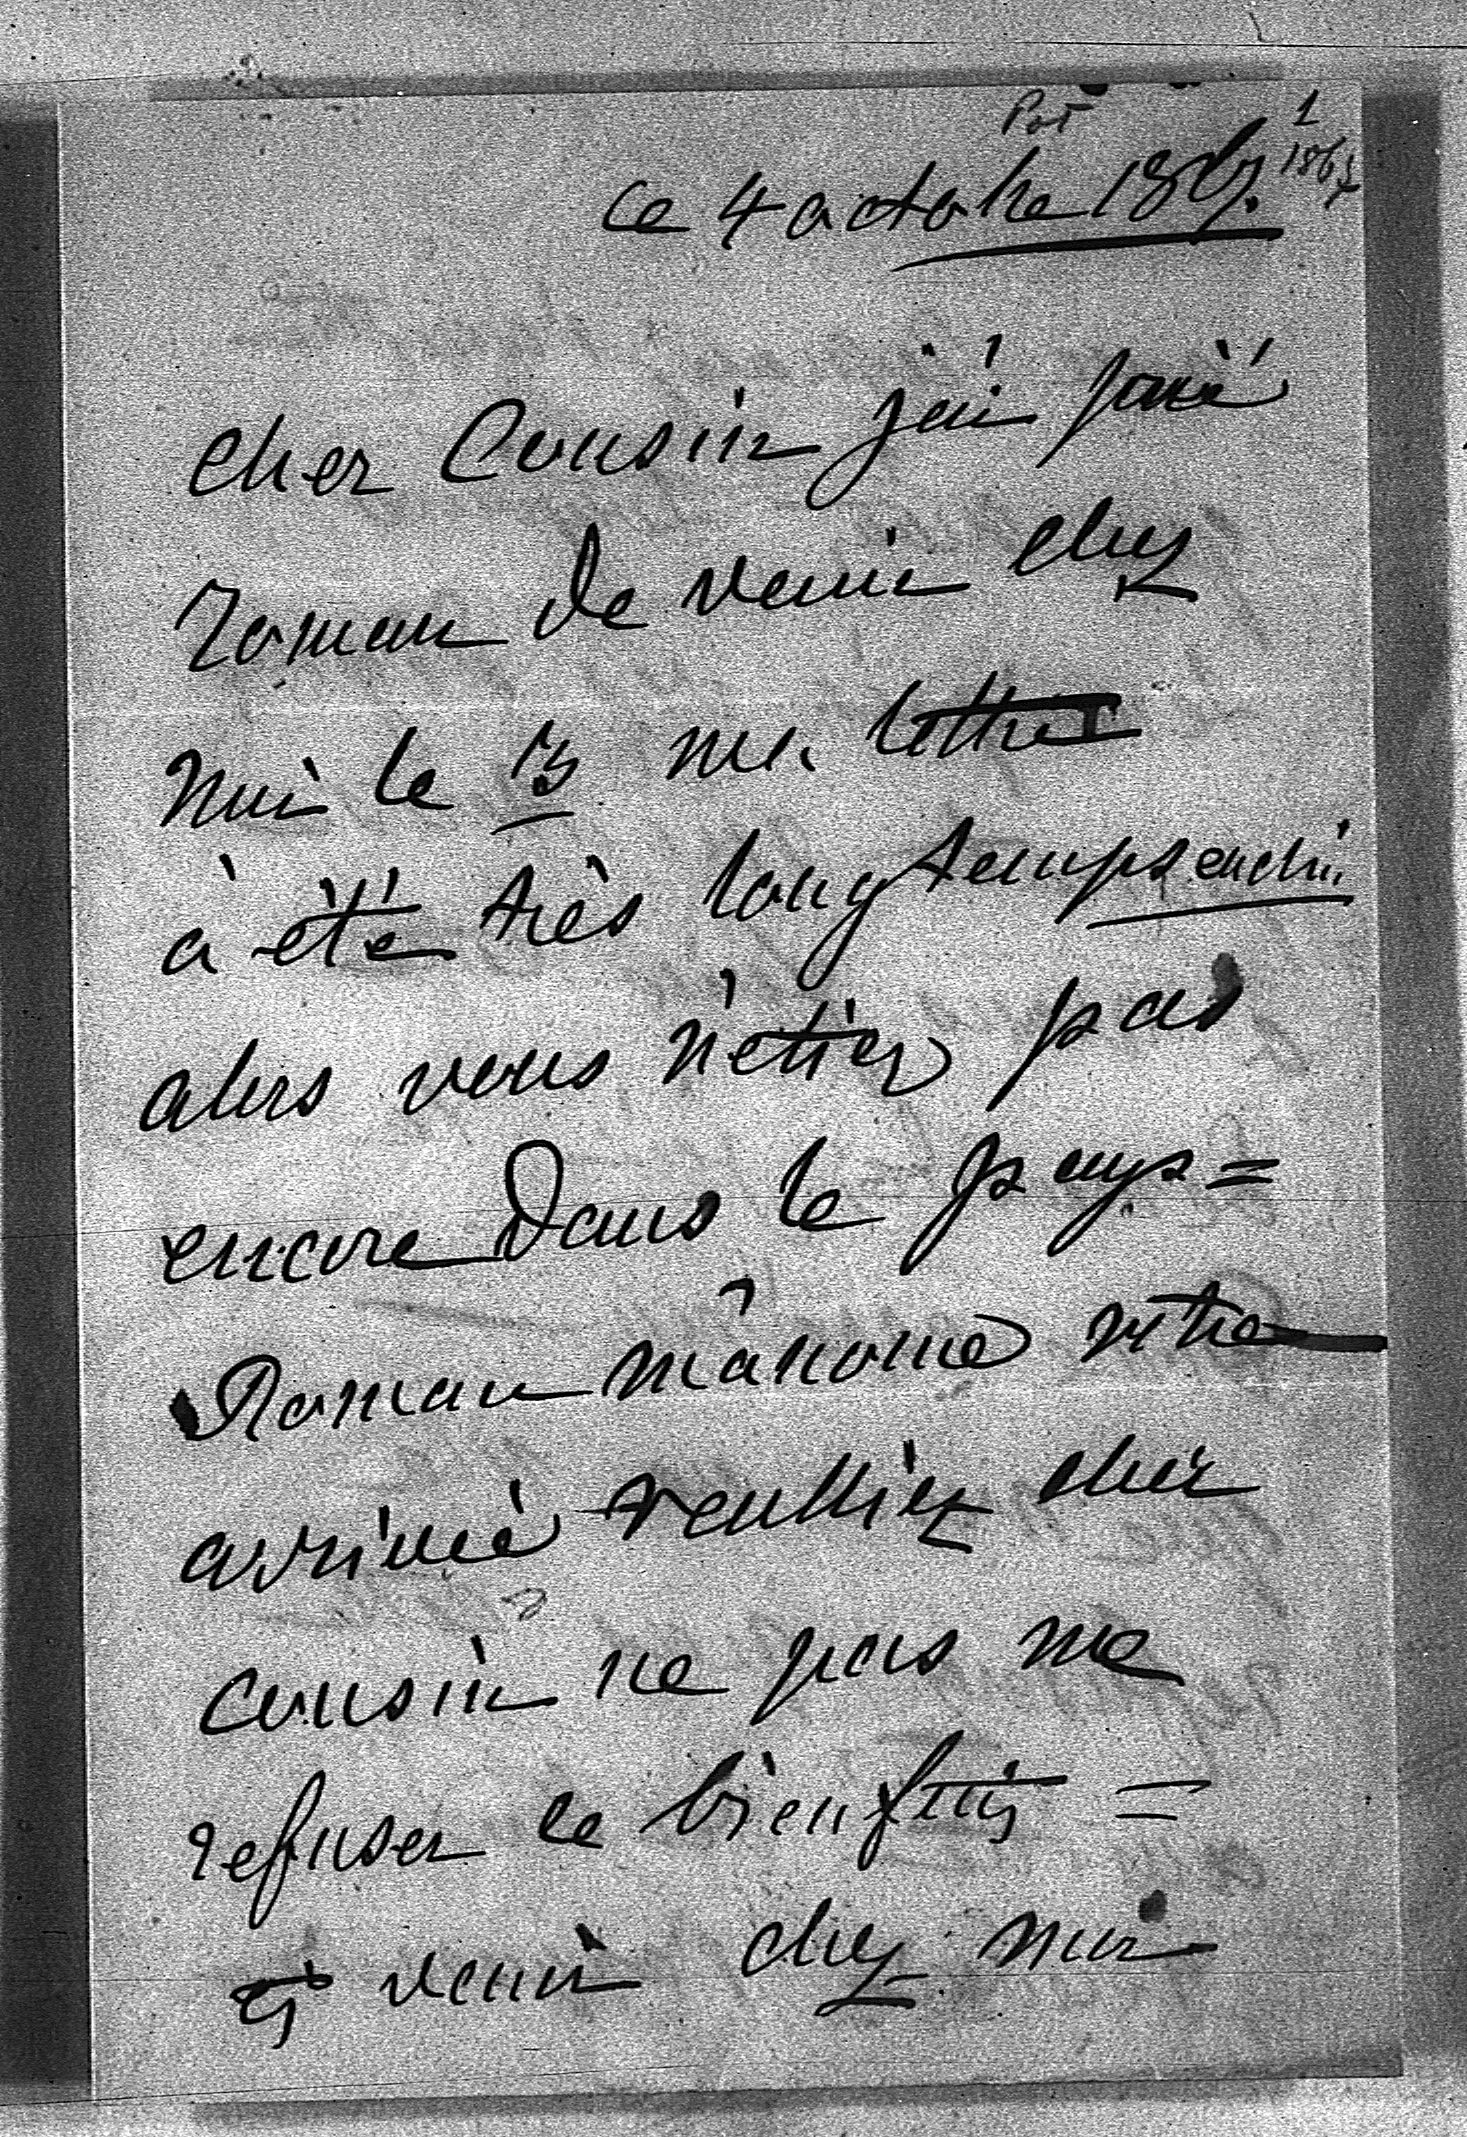 1
ce 4 octobre 186
cher Cousin j'ai prié
roman de venir chez
moi le ma lettre
à été très long temps
alors vous n'étiez pas
encore dans le pays =
Roman m'anonce votre
arrivée veulliez cher
cousin ne pas me
refuser ce bienfait =
et venir chez moi